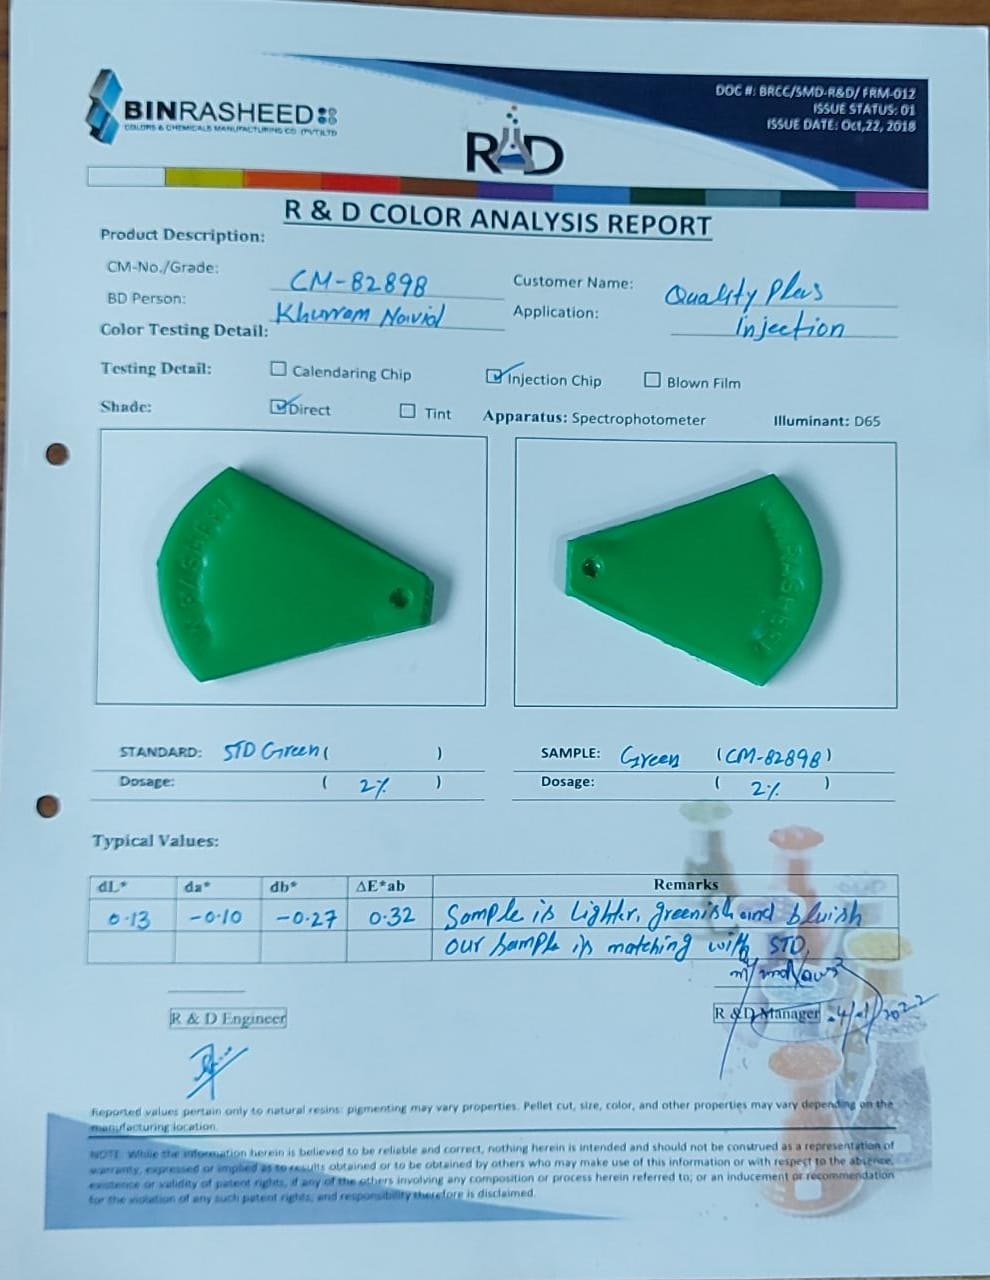 BINRASHEED
COLORS & CHEMICALS MANUFACTURING CO. (PVT)LTD
DOC #: BRCC/SMD-R&D/ FRM-012
ISSUE STATUS: 01
ISSUE DATE: Oct,22, 2018
R&D
R & D COLOR ANALYSIS REPORT
Product Description:
CM-No./Grade: CM-82898 Customer Name: Quality Plus
BD Person: Khurram Navid Application: injection
Color Testing Detail:
Testing Detail: ☐ Calendaring Chip ☑ Injection Chip ☐ Blown Film
Shade: ☑ Direct ☐ Tint Apparatus: Spectrophotometer Illuminant: D65
STANDARD: STD Green ( ) SAMPLE: Green (CM-82898)
Dosage: ( 2% ) Dosage: ( 2% )
Typical Values:
dL* da* db* ΔE*ab Remarks
0.13 -0.10 -0.27 0.32 Sample is Lighter, greenish and bluish
our sample is matching with STD.
R & D Engineer R & D Manager
Reported values pertain only to natural resins: pigmenting may vary properties. Pellet cut, size, color, and other properties may vary depending on the
manufacturing location.
NOTE: While the information herein is believed to be reliable and correct, nothing herein is intended and should not be construed as a representation of
warranty, expressed or implied as to results obtained or to be obtained by others who may make use of this information or with respect to the absence,
existence or validity of patent rights, if any of the others involving any composition or process herein referred to; or an inducement or recommendation
for the violation of any such patent rights, and responsibility therefore is disclaimed.